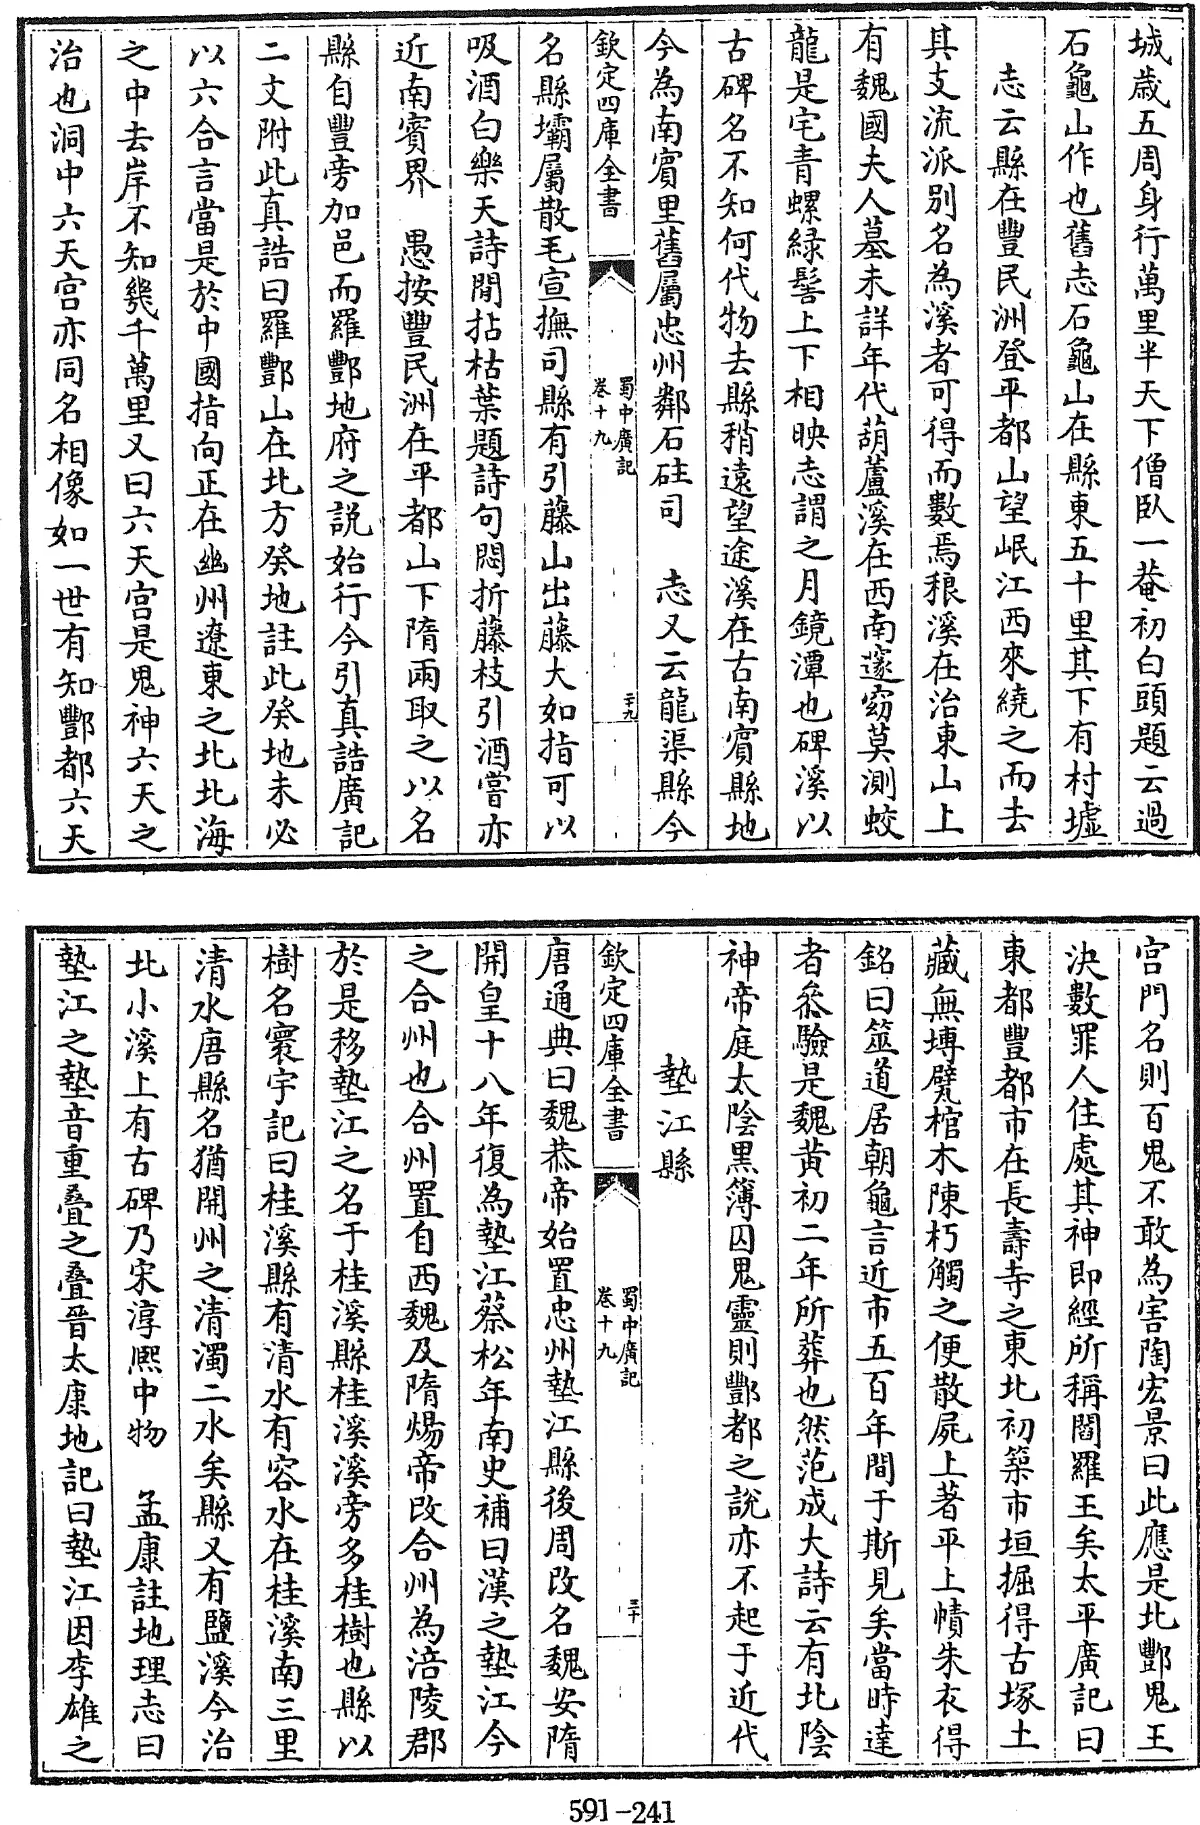 城歳五周身行萬里半天下僧臥一菴初白頭題云過
石龜山作也舊志石龜山在縣東五十里其下有村墟
志云縣在豐民洲登平都山望岷江西來繞之而去
其支流派别名為溪者可得而數焉稂溪在治東山上
有魏國夫人墓未詳年代葫蘆溪在西南邃窈莫測蛟
龍是宅青螺緑髻上下相映志謂之月鏡潭也碑溪以
古碑名不知何代物去縣稍遠望途溪在古南賓縣地
今為南賓里舊屬忠州鄰石砫司　志又云龍渠縣今
欽定四庫全書
蜀中廣記
卷十九
二十九
名縣壩屬散毛宣撫司縣有引藤山出藤大如指可以
吸酒白樂天詩閒拈枯葉題詩句悶折藤枝引酒嘗亦
近南賓界　愚按豐民洲在平都山下隋兩取之以名
縣自豐旁加邑而羅酆地府之説始行今引真誥廣記
二丈附此真誥曰羅酆山在北方癸地註此癸地未必
以六合言當是於中國指向正在幽州遼東之北北海
之中去岸不知幾千萬里又曰六天宫是鬼神六天之
治也洞中六天宫亦同名相像如一世有知酆都六天
宫門名則百鬼不敢為害陶宏景曰此應是北酆鬼王
決數罪人住處其神即經所稱閻羅王矣太平廣記曰
東都豐都市在長壽寺之東北初築市垣掘得古塚土
藏無塼甓棺木陳朽觸之便散屍上著平上幘朱衣得
銘曰筮道居朝龜言近市五百年間于斯見矣當時達
者叅驗是魏黄初二年所葬也然范成大詩云有北陰
神帝庭太陰黒簿囚鬼靈則酆都之說亦不起于近代
墊江縣
欽定四庫全書
蜀中廣記
卷十九
三十
唐通典曰魏恭帝始置忠州墊江縣後周改名魏安隋
開皇十八年復為墊江蔡松年南史補曰漢之墊江今
之合州也合州置自西魏及隋煬帝改合州為涪陵郡
於是移墊江之名于桂溪縣桂溪溪旁多桂樹也縣以
樹名寰宇記曰桂溪縣有清水有容水在桂溪南三里
清水唐縣名猶開州之清濁二水矣縣又有鹽溪今治
北小溪上有古碑乃宋淳熙中物　孟康註地理志曰
墊江之墊音重疊之疊晉太康地記曰墊江因李雄之
591-241